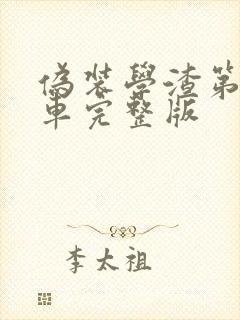 偽装學渣第
車完整版
李太祖